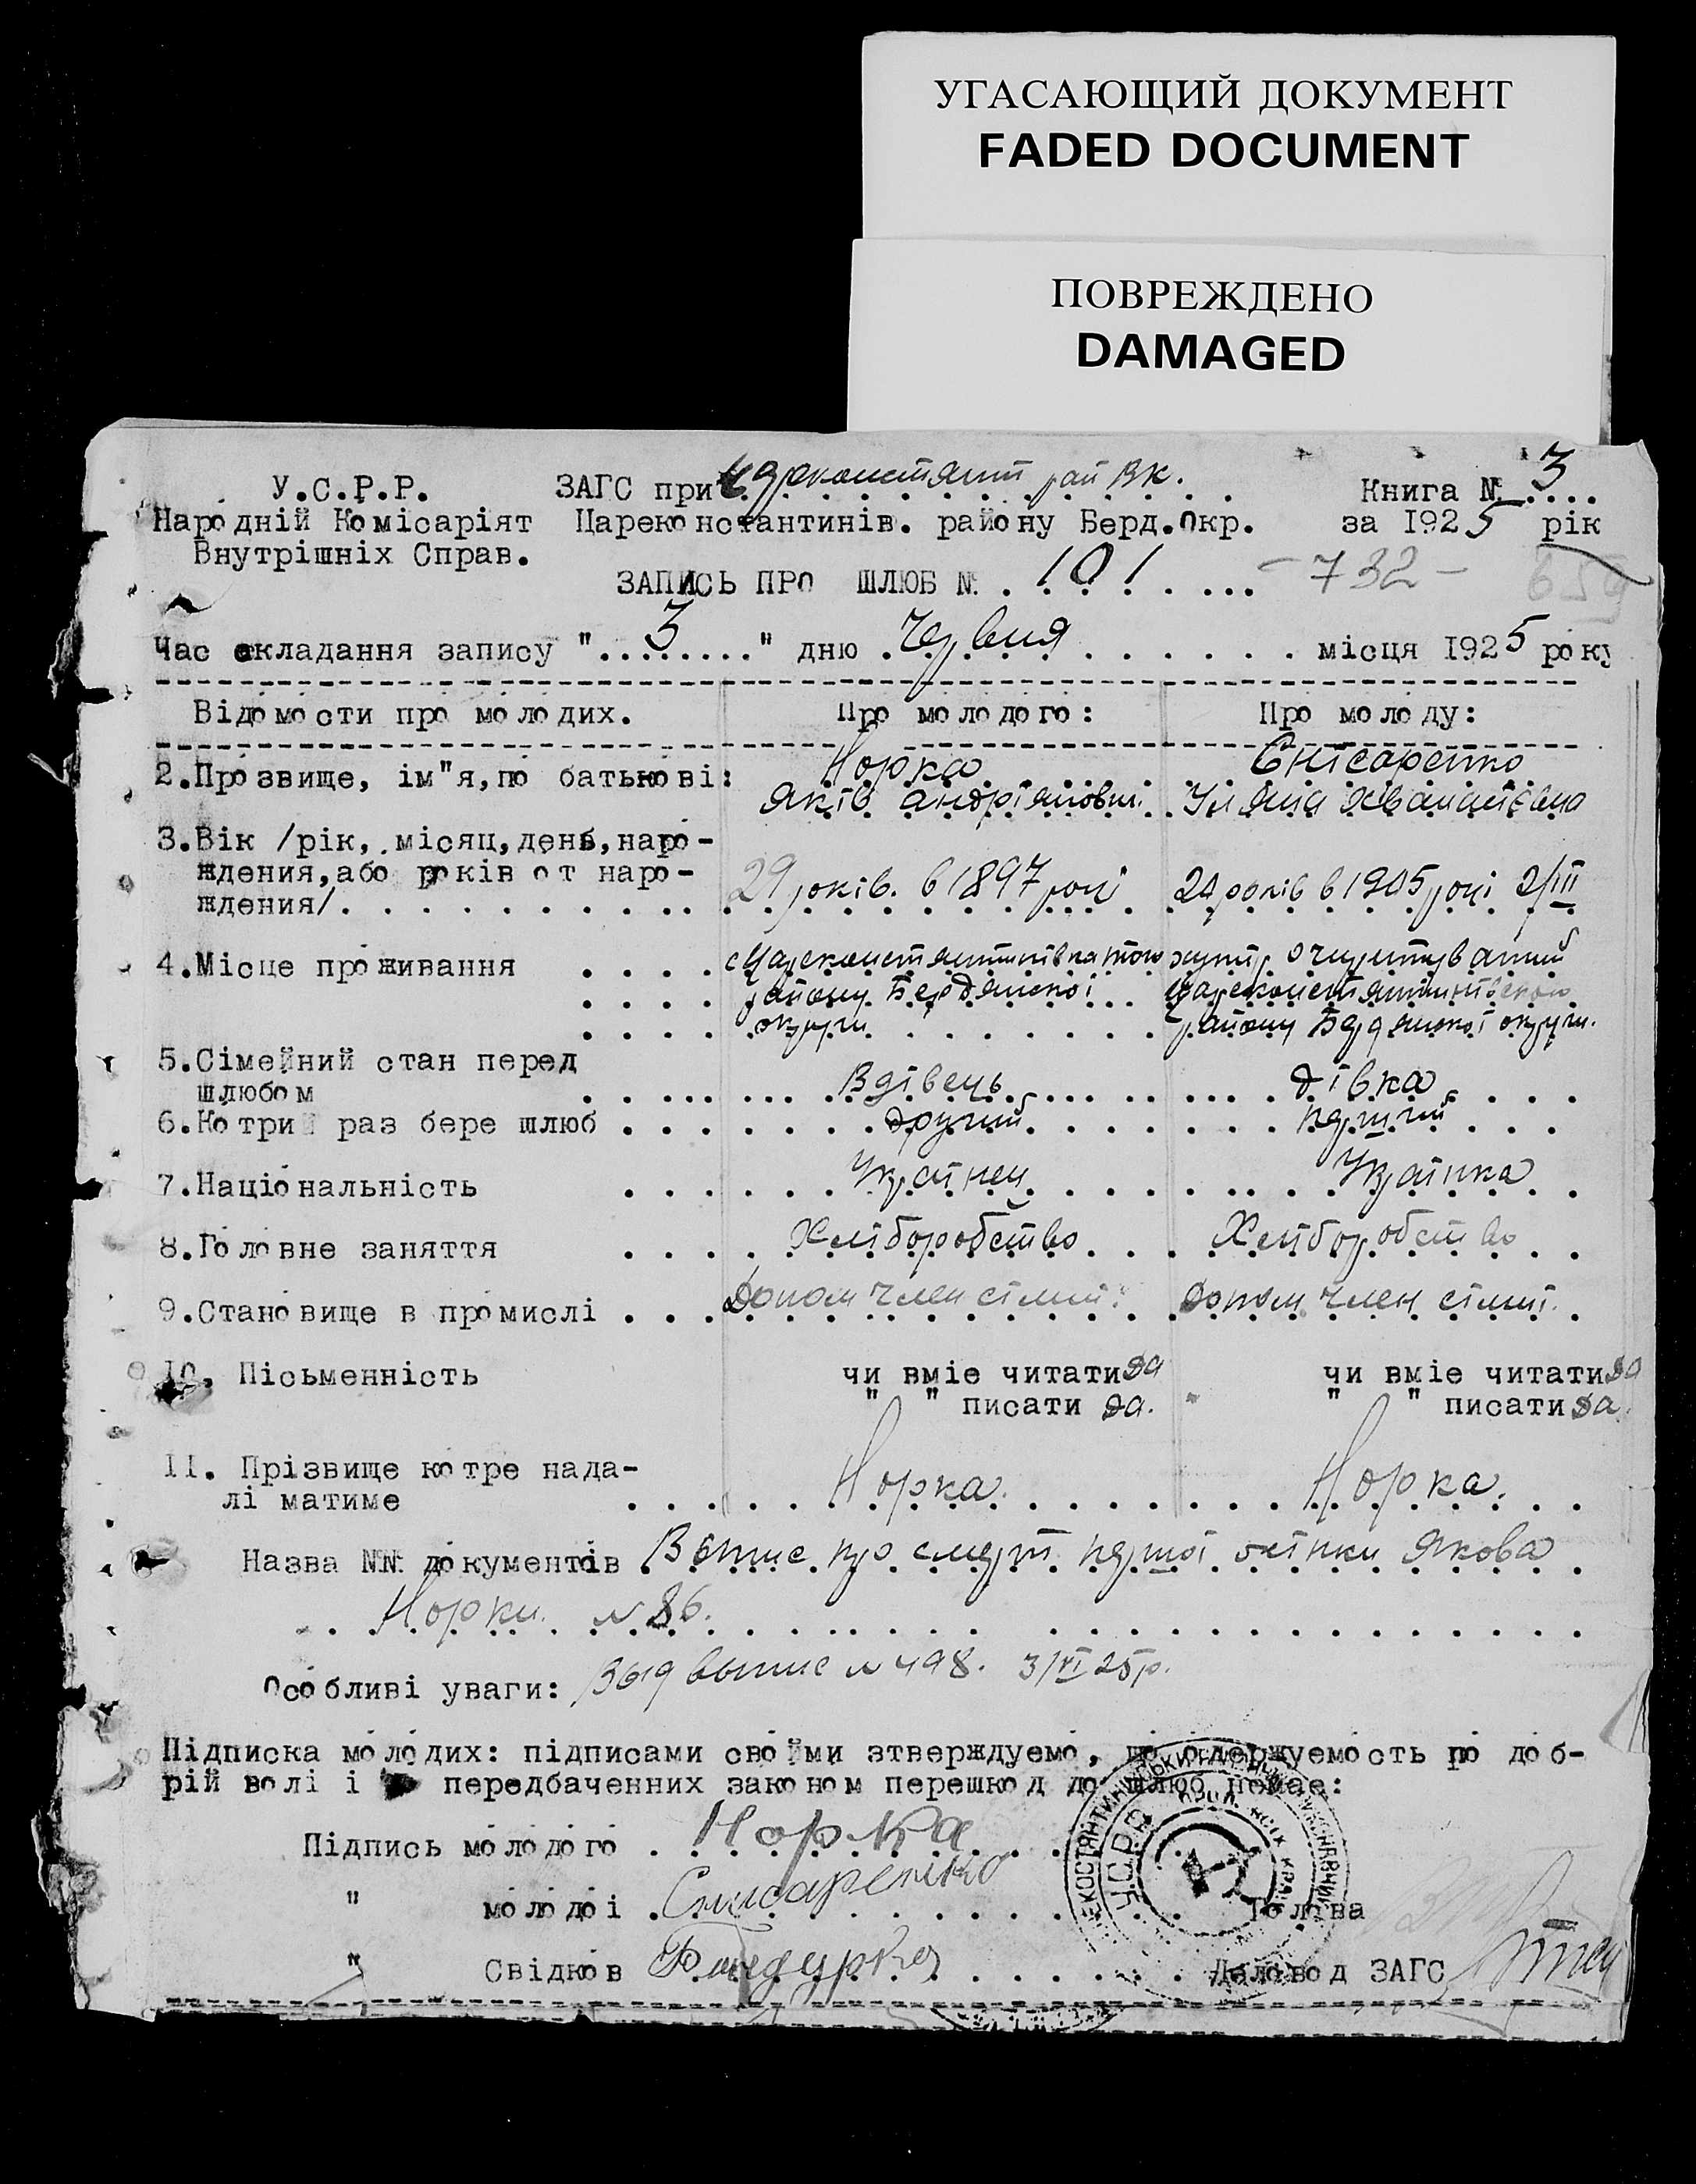 УГАСАЮЩИЙ ДОКУМЕНТ
FADED DOCUMENT
ПОВРЕЖДЕНО
DAMAGED
У.С.Р.Р. ЗАГС при Цареконстянт рай ВК. Книга № 3
Народній Комісаріят Цареконстантинів. району Берд.Окр. за 1925 рік
Внутрішніх Справ.
ЗАПИСЬ ПРО ШЛЮБ №. 101 - 732 - 659
Час складання запису "3" дню Червня місця 1925 року
Відомости про молодих. Про молодого: Про молоду:
2.Прозвище, ім"я,по батькові: Норка Снісаренко
Яків Андріянович Уляна
3.Вік /рік, місяц,день,наро-
ждения,або років от наро- 29 років. в 1897 році 20 років в 1905 році 2/III
ждения/
4.Місце проживання с Цареконстянтинівка того хутір
району Бердянської Цареконстянтинівського
округи району Бердянської округи.
5.Сімейний стан перед
шлюбом Вдівець дівка
6.Котрий раз бере шлюб другий перший
7.Національність Українец Українка
8.Головне заняття Хліборобство Хліборобство
9.Становище в промислі Допом член сімї. Допом член сімї.
10. Пісьменність чи вміе читати да чи вміе читати да
" " писати да. " " писати да.
11. Прізвище котре нада-
лі матиме Норка. Норка.
Назва №№ документів Вьтис про смерть першої жінки Якова
Норки. № 86.
Особливі уваги: Вид вьтис № 498. 3/VI 25 р.
Підписка молодих: підписами своїми зтверждуемо, що одержуемость по доб-
рій волі і передбаченних законом перешкод до шлюб немае:
Підпись молодого Норка
" молодоі Снисаренко
Голова
" Свідков Деловод ЗАГС
У.С.Р.Р.